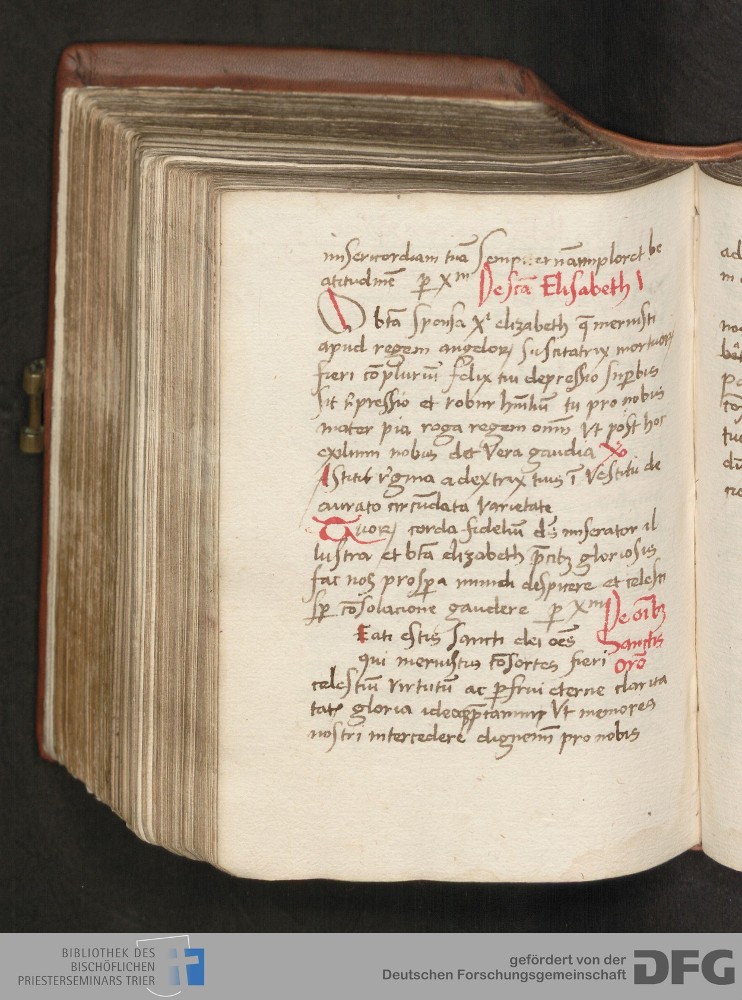 misericordiam tuā sempiternā implorēt be
atitudinē p̄ Xm̄ De scā Elisabeth
O btā sponsa Xi elizabeth q̄ meruisti
apud regem angelorꝝ suscitatrix mortuorꝝ
fieri cōplurium felix tui depressio superbis
sit
et robur hūilium tu pro nobis
mater pia roga regem om̄m Vt post hoc
exilium nobis det Vera gaudia
Astitit regina a dextris tuis ī Vestitu de
aurato circūdata Varietate
Tuorꝝ corda fidelium ds̄ miserator il
lustra et btē elizabeth p̄cibꝫ gloriosis
fac nos prospera mundi despicere et celesti
sp̄ cōsolacione gaudere p̄ Xm̄ De oībꝫ
Beati estis Sancti dei oēs Sanctis
qui meruistis cōsortes fieri orō
celestium Virtutū ac p̄frui eterne clarita
tatis gloria ideo p̄camur Vt memores
nostri intercedere dignemī pro nobis
ad
tu
BIBLIOTHEK DES
BISCHÖFLICHEN
PRIESTERSEMINARS TRIER
gefördert von der
Deutschen Forschungsgemeinschaft DFG